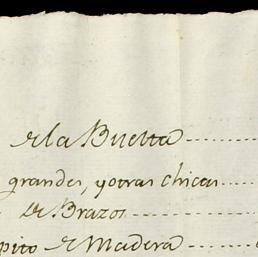 de la Buelta
grandes, y otras chicas
de Brazos
pito de Madera